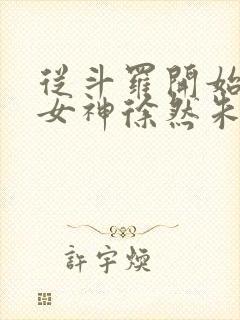 從斗羅開始
女神徐然朱
許宇煥